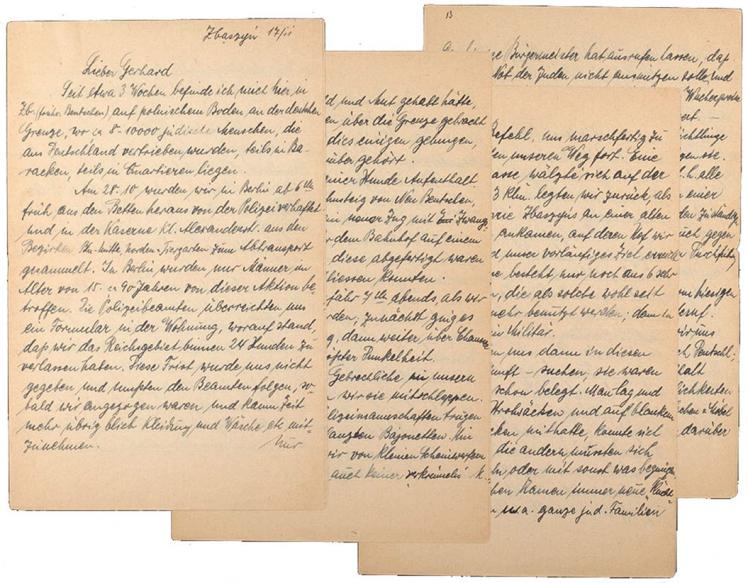 Zbaszyń 17/11
Lieber Gerhard
Seit etwa 3 Wochen befinde ich mich hier in
Zb. (früher Bentschen) auf polnischem Boden, an der deutschen
Grenze, wo ca 8-10000 jüdische Menschen, die
aus Deutschland vertrieben wurden, teils in Ba-
racken, teils in Quartieren liegen.
Am 28.10 wurden wir, in Berlin ab 6 Uhr
früh aus den Betten heraus von der Polizei verhaftet
und in der Kaserne Kl. Alexanderstr. aus den
Bezirken Bln-Mitte, Norden, Tiergarten zum Abtransport
gesammelt. In Berlin wurden nur Männer im
Alter von 15 - 90 Jahren von dieser Aktion be-
troffen. Die Polizeibeamten überreichten uns
ein Formular in der Wohnung, worauf stand,
daß wir das Reichsgebiet binnen 24 Stunden zu
verlassen haben. Diese Frist wurde uns nicht
gegeben und mußten den Beamten folgen, so-
bald wir angezogen waren und kaum Zeit
mehr übrig blieb Kleidung und Wäsche etc mit-
zunehmen.
Nur
ld und Mut gehabt hätte,
en über die Grenze gebracht
dies einigen gelungen,
über gehört.
einer Stunde Aufenthalt
hnsteig von Neu Bentschen,
ein neuer Zug mit
dem Bahnhof auf einem
diese abgefertigt waren
liessen konnten.
fähr 7 Uhr abends als wir
rden, zunächst ging es
g, dann weiter, über
Dunkelheit.
Gebrechliche in unsern
wir sie mitschleppen.
lizeimannschaften trugen
lanzten Bajonetten. Hin
wir von kleinen Scheinwerfern
auch keiner "verkrümeln" k.
13
ge Bürgermeister hat ausrufen lassen, daß
Not der Juden nicht ausnützen solle, und
Wucherpreise
Befehl, uns marschfertig zu
en unseren Weg fort. Eine
asse wälzte sich auf der
3 klm. legten wir zurück, als
rie Zbaszyń an einer alten
ankamen, auf deren Hof wir
und unser vorläufiges Ziel erreicht
ne besteht nur noch aus 6 sehr
n, die als solche wohl seit
mehr benutzt werden; denn in
in Militär.
en uns dann in diesen
nft - suchen; sie waren
schon belegt. Man lag auf
Strohsäcken und auf blanken
cken mithatte, konnte sich
die andern mussten sich
n oder mit sonst was begnügen
ben kamen immer neue
n u.a. ganze jüd. Familien
chtlinge
gen sie.
h.h. alle
einer
den Zuständen
uch gegen
m hiesigen
wir uns
ch Deutschl.
alt
ichkeiten
darüber